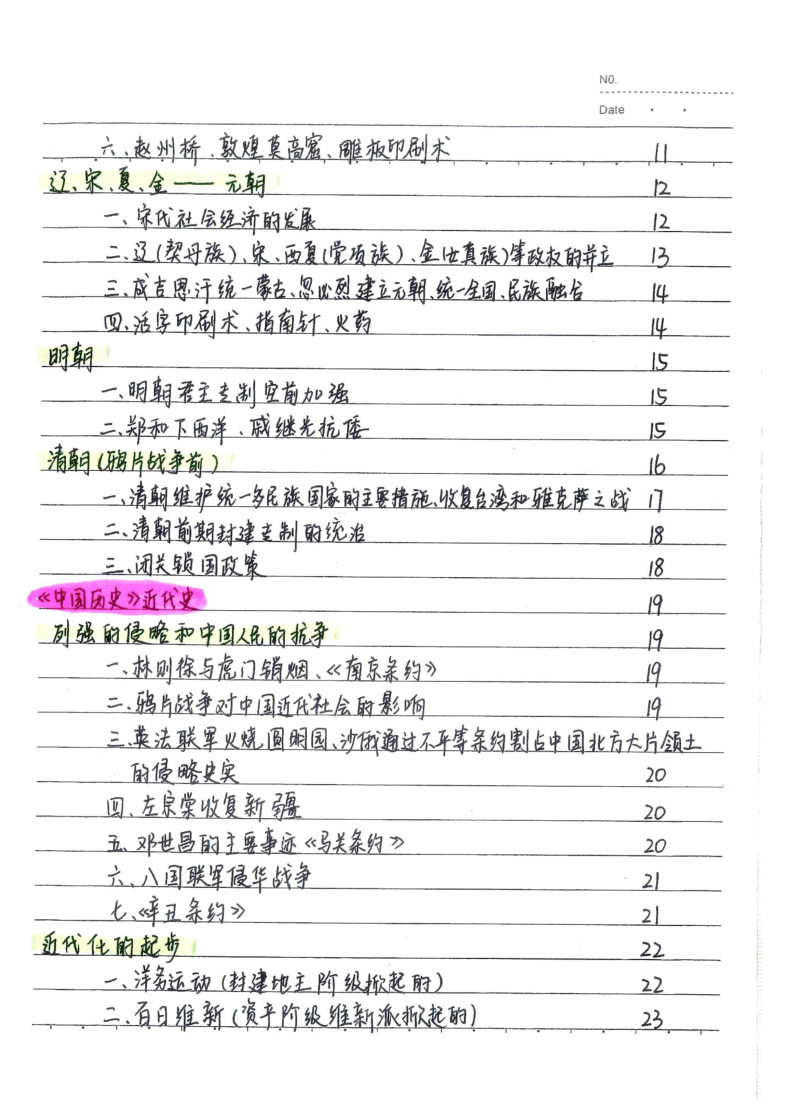 NO.
Date
六、赵州桥、敦煌莫高窟、雕板印刷术 11
辽、宋、夏、金——元朝 12
一、宋代社会经济的发展 12
二、辽(契丹族)、宋、西夏(党项族)、金(女真族)等政权的并立 13
三、成吉思汗统一蒙古、忽必烈建立元朝、统一全国、民族融合 14
四、活字印刷术、指南针、火药 14
明朝 15
一、明朝君主专制空前加强 15
二、郑和下西洋、戚继光抗倭 15
清朝(鸦片战争前) 16
一、清朝维护统一多民族国家的主要措施、收复台湾和雅克萨之战 17
二、清朝前期封建专制的统治 18
三、闭关锁国政策 18
《中国历史》近代史 19
列强的侵略和中国人民的抗争 19
一、林则徐与虎门销烟、《南京条约》 19
二、鸦片战争对中国近代社会的影响 19
三、英法联军火烧圆明园、沙俄通过不平等条约割占中国北方大片领土
的侵略史实 20
四、左宗棠收复新疆 20
五、邓世昌的主要事迹《马关条约》 20
六、八国联军侵华战争 21
七、《辛丑条约》 21
近代化的起步 22
一、洋务运动(封建地主阶级掀起的) 22
二、百日维新(资产阶级维新派掀起的) 23